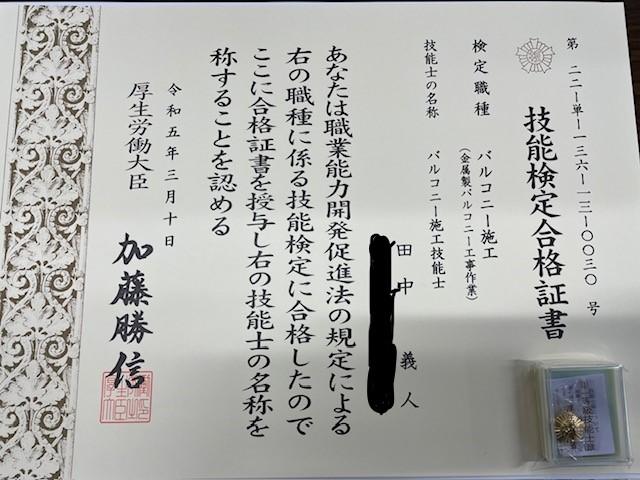 第二二ー単ー一三六ー一三ー〇〇三〇号
技能検定合格証書
検定職種 バルコニー施工
(金属製バルコニー工事作業)
技能士の名称 バルコニー施工技能士
田中 義人
あなたは職業能力開発促進法の規定による
右の職種に係る技能検定に合格したので
ここに合格証書を授与し右の技能士の名称を
称することを認める
令和五年三月十日
厚生労働大臣 加藤勝信